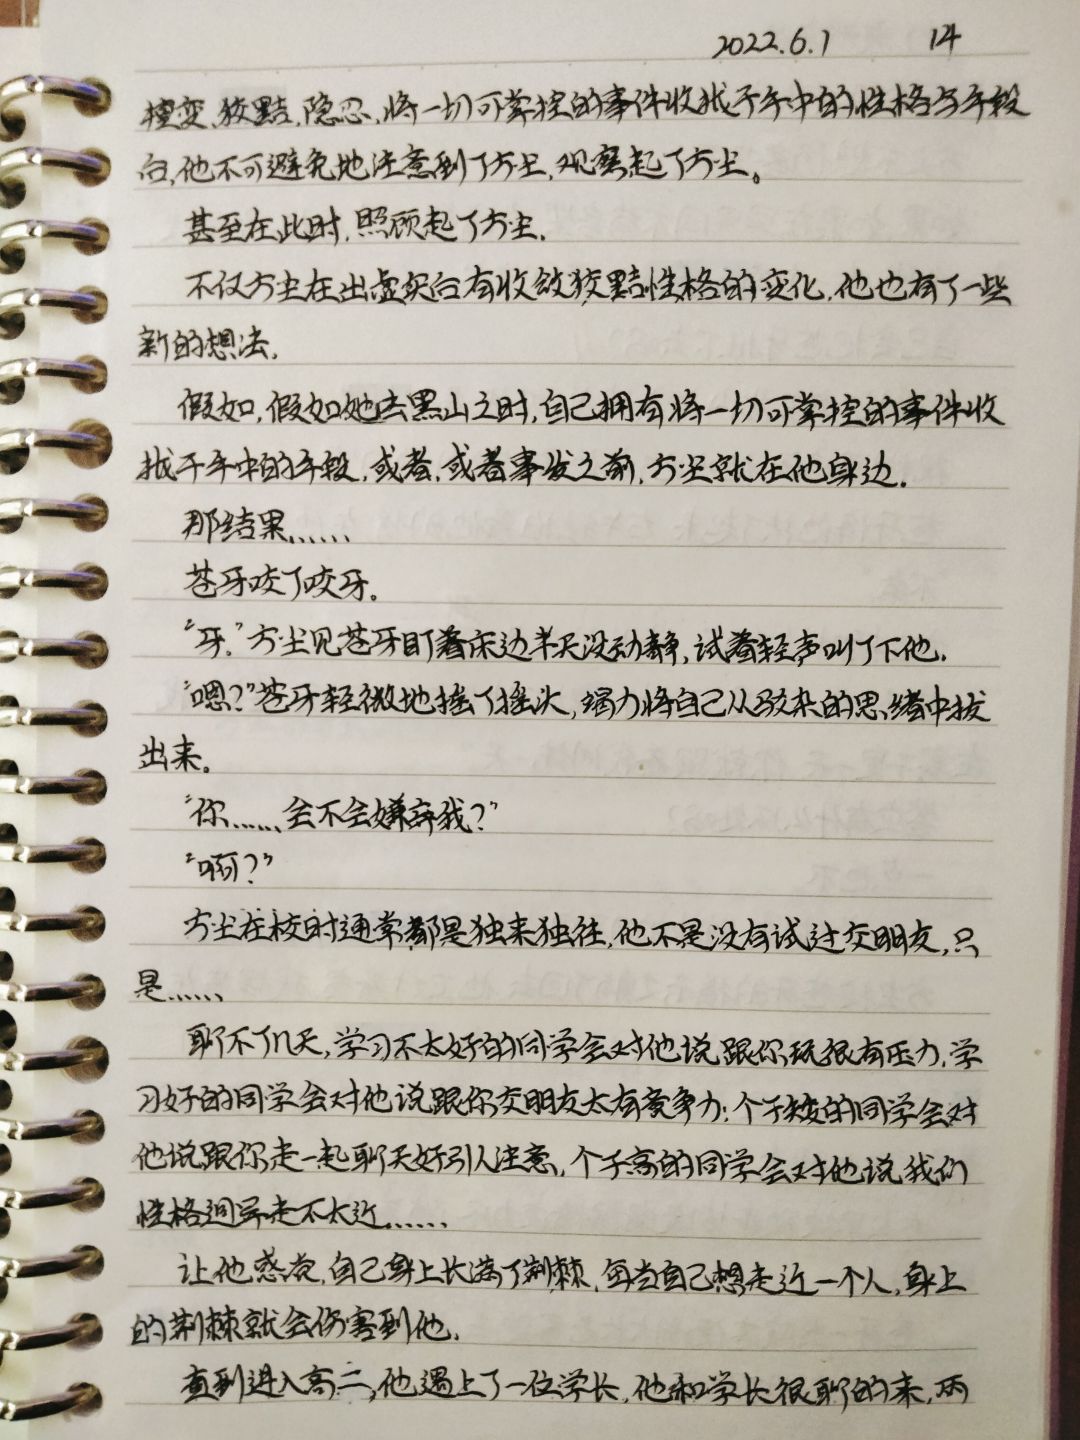 2022.6.1 14
擅变,狡黠,隐忍,将一切可掌控的事件收拢于手中的性格与手段
后,他不可避免地注意到了方尘,观察起了方尘。
甚至在此时,照顾起了方尘.
不仅方尘在出虚实后有收敛狡黠性格的变化,他也有了一些
新的想法.
假如,假如她去黑山之时,自己拥有将一切可掌控的事件收
拢于手中的手段,或者,或者事发之前,方尘就在他身边.
那结果……
苍牙咬了咬牙。
“牙.”方尘见苍牙盯着床边半天没动静,试着轻声叫了下他.
“嗯?”苍牙轻微地摇了摇头,竭力将自己从驳杂的思绪中拔
出来。
“你……会不会嫌弃我?”
“啊?”
方尘在校时通常都是独来独往,他不是没有试过交朋友,只
是……
聊不了几天,学习不太好的同学会对他说跟你玩很有压力,学
习好的同学会对他说跟你交朋友太有竞争力;个子矮的同学会对
他说跟你走一起聊天好引人注意,个子高的同学会对他说我们
性格迥异走不太近……
让他感觉,自己身上长满了荆棘,每当自己想走近一个人,身上
的荆棘就会伤害到他.
直到进入高二,他遇上了一位学长,他和学长很聊的来,两